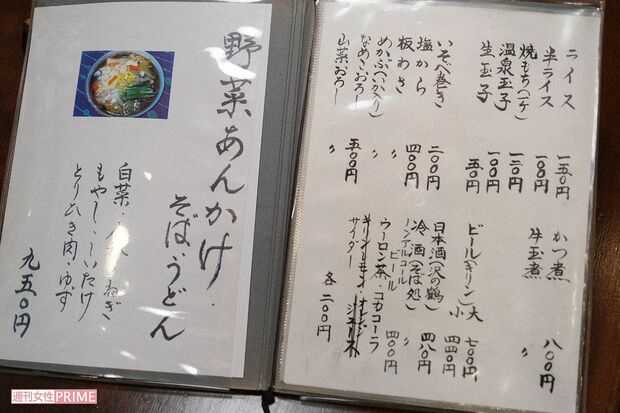 野菜あんかけ
そば・うどん
白菜・ねぎ
もやし・しいたけ
とりひき肉・ゆず
九五〇円
ライス 一五〇円
半ライス 一〇〇円
焼もち(一ケ) 一二〇円
温泉玉子 一〇〇円
生玉子 五〇円
いそべ巻き 二〇〇円
塩から 四〇〇円
板わさ 〃
めかぶ(いか入り) 〃
なめこおろし 五〇〇円
山菜おろし 〃
かつ煮 八〇〇円
牛玉煮 〃
ビール(キリン)大 七〇〇円
小 四四〇円
日本酒(沢の鶴) 四八〇円
冷酒(そば処) 〃
ノンアルコールビール 四〇〇円
ウーロン茶・コカコーラ
キリンレモン・オレンジジュース
サイダー 各二〇〇円
週刊女性PRIME